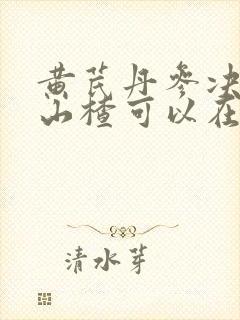 黄芪丹参决
山楂可以在
清水芽